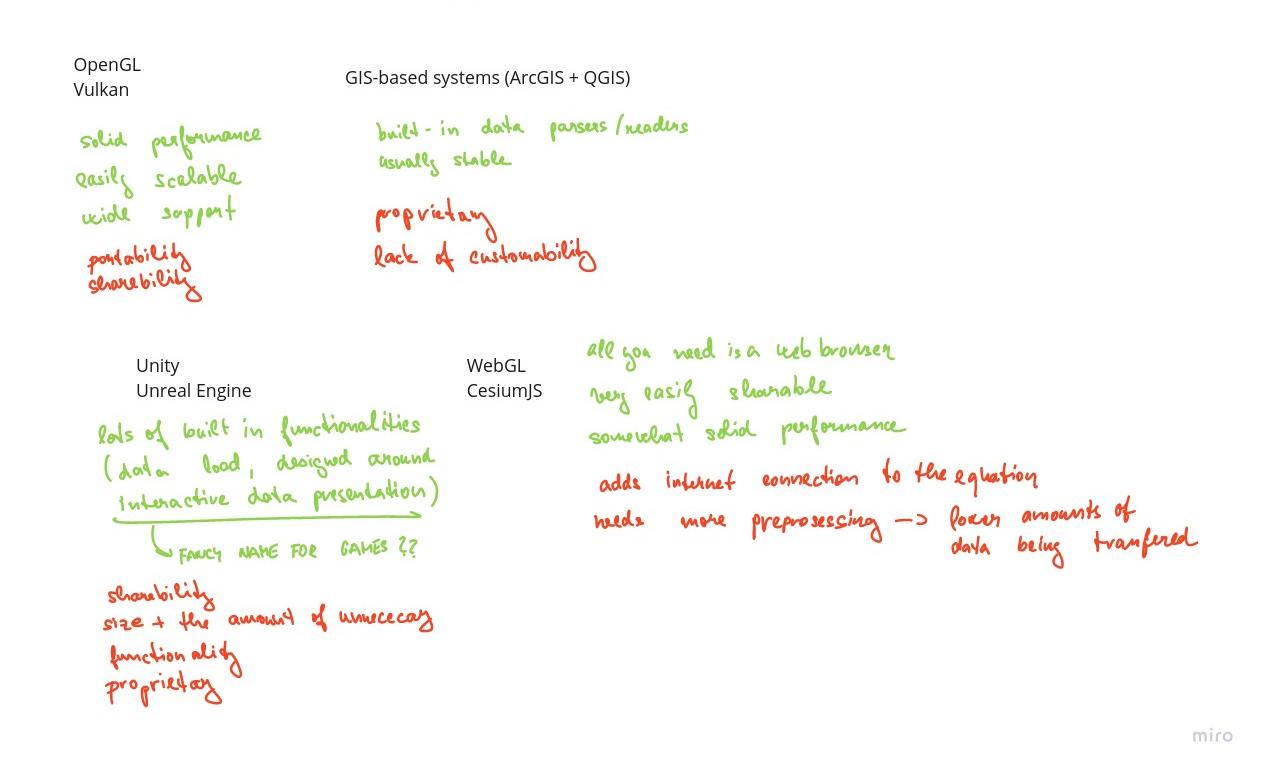 OpenGL
Vulkan
solid performance
easily scalable
wide support
portability
sharebility
GIS-based systems (ArcGIS + QGIS)
built-in data parsers/readers
usually stable
proprietary
lack of customability
Unity
Unreal Engine
lots of built in functionalities
(data load, designed around
interactive data presentation)
FANCY NAME FOR GAMES ??
sharebility
size + the amount of unnececay
functionality
proprietay
WebGL
CesiumJS
all you need is a web browser
very easily sharable
somewhat solid performance
adds internet connection to the equation
needs more preprosessing -> lower amounts of
data being tranfered
miro